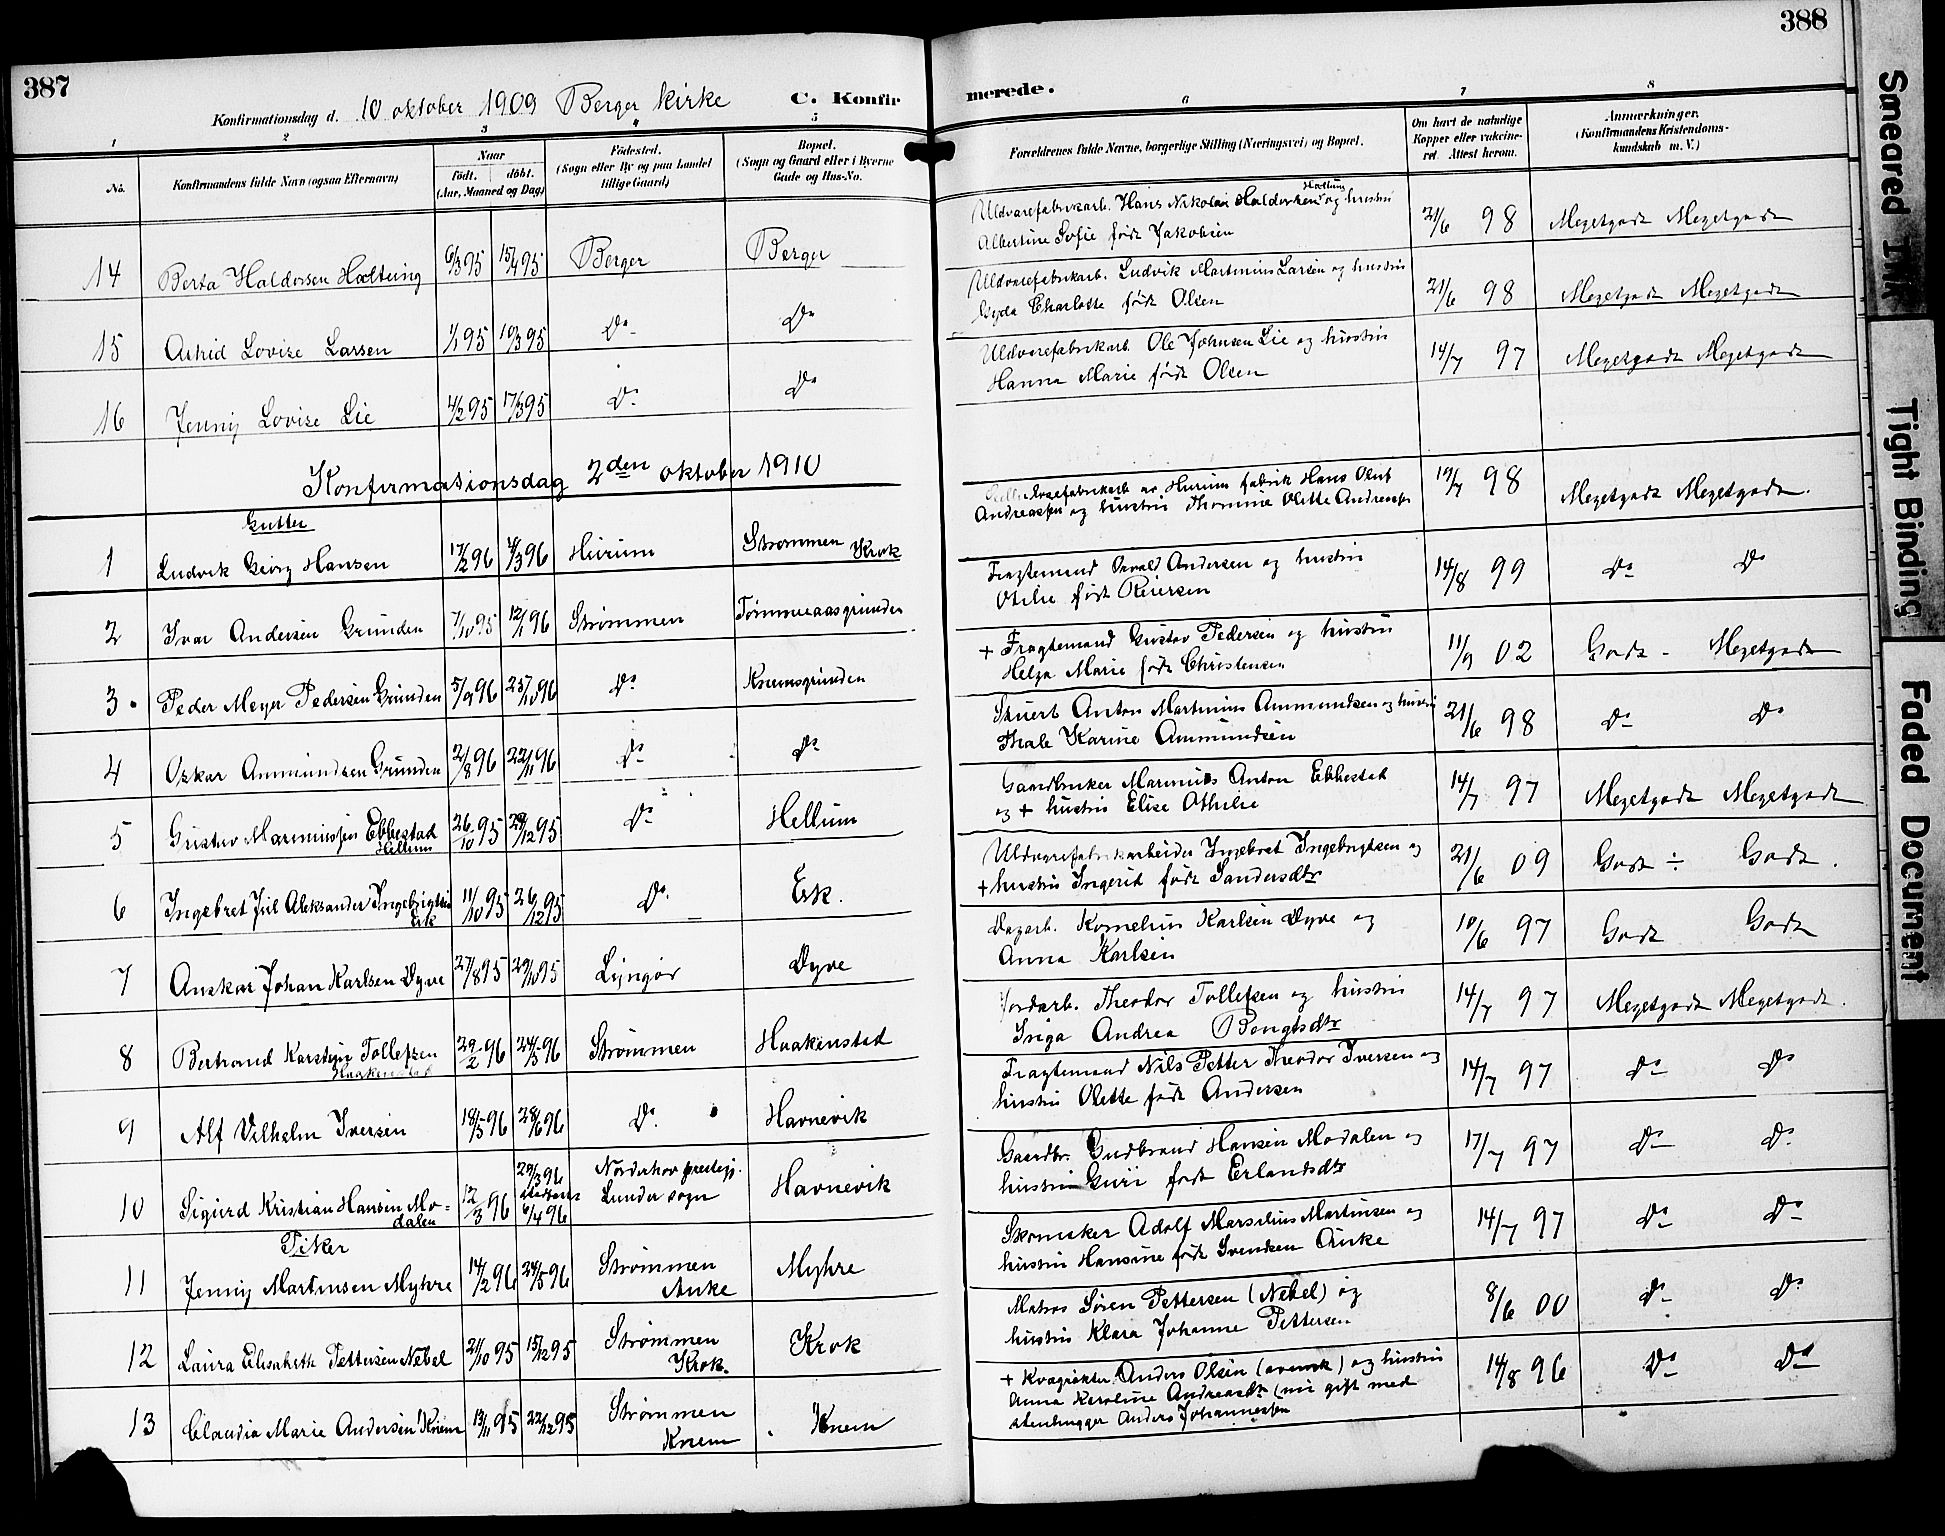 387
388
Konfirmationsdag d. 10 oktober 1909 Berger kirke C. Konfir merede.
1 2 3 4 5 6 7 8
No.
Konfirmandens fulde Navn (ogsaa Efternavn)
Naar
födt. döbt.
(Aar, Maaned og Dag)
Födested.
(Sogn eller By og paa Landet
tillige Gaard)
Bopæl.
(Sogn og Gaard eller i Byerne
Gade og Hus-No.
Forældrenes fulde Navne, borgerlige Stilling (Næringsvei) og Bopæl.
Om havt de naturlige
Kopper eller vakcine-
ret. Attest herom.
Anmærkninger.
(Konfirmandens Kristendoms-
kundskab m. V.)
14 Berta Haldorsen Hæltung 6/3 95 15/4 95 Berger Berger
Uldvarefabrikarb. Hans Nikolai Haldorsen og hustru
Albertine Sofie født Jakobsen 21/6 98 Megetgodt Megetgodt
15 Astrid Lovise Larsen 1/1 95 10/3 95 Do Do
Uldvarefabrikarb. Ludvik Martinius Larsen og hustru
Gyda Charlotte født Olsen 21/6 98 Megetgodt Megetgodt
16 Jenny Lovise Lie 4/2 95 17/3 95 Do Do
Uldvarefabrikarb. Ole Johnsen Lie og hustru
Hanna Marie født Olsen 14/7 97 Megetgodt Megetgodt
Konfirmationsdag 2den oktober 1910
Gutter
1 Ludvik Georg Hansen 17/2 96 4/3 96 Hurum Strømmen Krok
Hurum fabrik Hans Oluf
Andreassen og hustru Thomine Olette Andreassen 19/7 98 Megetgodt Megetgodt.
2 Ivar Andersen Grunden 7/10 95 12/1 96 Strømmen Tømmeraasgrunden
Fragtemand Osvald Andersen og hustru
Otelie født Reiersen 14/8 99 Do Do
3 Peder Meyer Pedersen Grunden 5/9 96 25/10 96 Do Knemsgrunden
+ Fragtemand Gustav Pedersen og hustru
Helga Marie født Christensen 11/9 02 Godt - Megetgodt
4 Oskar Ammundsen Grunden 2/8 96 22/11 96 Do Do
Stuert Anton Martinius Ammundsen og hustru
Thale Karine Ammundsen 21/6 98 Do Do
5 Gustav Marinussen Ebbestad Hellum 26/10 95 29/12 95 Do Hellum
Gaardbruker Marinius Anton Ebbestad
og + hustru Elise Othilie 14/7 97 Megetgodt Megetgodt
6 Ingebret Juel Aleksander Ingebrigtsen Ek 11/10 95 26/12 95 Do Ek.
Uldvarefabrikarbeider Ingebret Ingebrigtsen og
+ hustru Ingerid født Sandersdtr 21/6 09 Godt ÷ Godt.
7 Anskar Johan Karlsen Dyve 27/8 95 29/10 95 Lyngør Dyve
Dagarb. Kornelius Karlsen Dyve og
Anna Karlsen 10/6 97 Godt Godt
8 Bertrand Karstein Tollefsen Haakenstad 29/2 96 24/5 96 Strømmen Haakenstad
Jordarb. Theodor Tollefsen og hustru
Inga Andrea Bengtsdtr 14/7 97 Megetgodt Megetgodt.
9 Alf Vilhelm Iversen 18/5 96 28/6 96 Do Havnevik
Fragtemand Nils Petter Theodor Iversen og
hustru Olette født Andersen 14/7 97 Do Do
10 Sigurd Kristian Hansen Mo-
dalen 12/3 96 29/3 96 6/4 96 Norderhov prestegj.
Lunder sogn Havnevik
Gaardbr. Gudbrand Hansen Modalen og
hustru Guri født Erlandsdtr 17/7 97 Do Do
Piker
11 Jenny Martinsen Myhre 14/2 96 24/5 96 Strømmen
Auke Myhre
Skomaker Adolf Marselius Martinsen og
hustru Hansine født Svendsen Auke 14/7 97 Do Do
12 Laura Elisabeth Pettersen Nebel 21/10 95 15/12 95 Strømmen
Krok. Krok
Matros Søren Pettersen (Nebel) og
hustru Klara Johanne Pettersen 8/6 00 Do Do
13 Claudia Marie Andersen Knem 13/11 95 22/12 95 Strømmen
Knem Knem
+ Kvægrøkter Anders Olsen (svensk) og hustru
Anna Karoline Andreasdtr (nu gift med
stenhugger Anders Johannessen 14/8 96 Do Do
Smeared Ink
Tight Binding
Faded Document